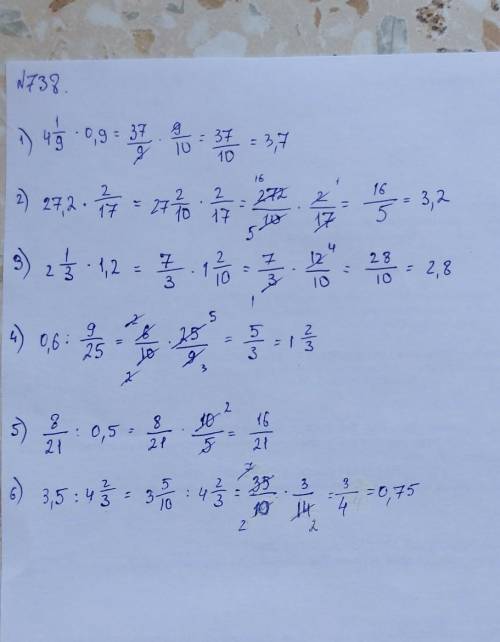 №738.
1) 4 1/9 · 0,9 = 37/9 · 9/10 = 37/10 = 3,7
2) 27,2 · 2/17 = 27 2/10 · 2/17 = 272/10 · 2/17 = 16/5 = 3,2
3) 2 1/3 · 1,2 = 7/3 · 1 2/10 = 7/3 · 12/10 = 28/10 = 2,8
4) 0,6 : 9/25 = 6/10 · 25/9 = 5/3 = 1 2/3
5) 8/21 : 0,5 = 8/21 · 10/5 = 16/21
6) 3,5 : 4 2/3 = 3 5/10 : 4 2/3 = 35/10 · 3/14 = 3/4 = 0,75